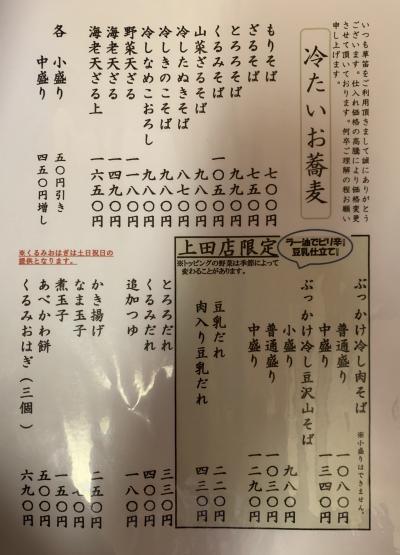 いつも草笛をご利用頂きまして誠にありがとう
ございます。仕入れ価格の高騰により価格変更
させて頂いております。何卒ご理解の程お願い
申し上げます。
冷たいお蕎麦
もりそば 七〇〇円
ざるそば 七五〇円
とろろそば 九九〇円
くるみそば 一〇五〇円
山菜ざるそば 九八〇円
冷したぬきそば 八七〇円
冷しきのこそば 九八〇円
冷しなめこおろし 九八〇円
野菜天ざる 一一八〇円
海老天ざる 一四九〇円
海老天ざる上 一六五〇円
各 小盛り 五〇円引き
中盛り 四五〇円増し
上田店限定
ラー油でピリ辛♪
豆乳仕立て♪
※トッピングの野菜は季節によって
変わることがあります。
ぶっかけ冷し肉そば ※小盛りはできません。
普通盛り 一〇八〇円
中盛り 一三四〇円
ぶっかけ冷し豆沢山そば
小盛り 九八〇円
普通盛り 一〇三〇円
中盛り 一二九〇円
豆乳だれ 二二〇円
肉入り豆乳だれ 四三〇円
とろろだれ 三三〇円
くるみだれ 四〇〇円
追加つゆ 一八〇円
※くるみおはぎは土日祝日の
提供となります。
かき揚げ 二五〇円
なま玉子
煮玉子 一五〇円
あべかわ餅 五〇〇円
くるみおはぎ（三個） 六九〇円